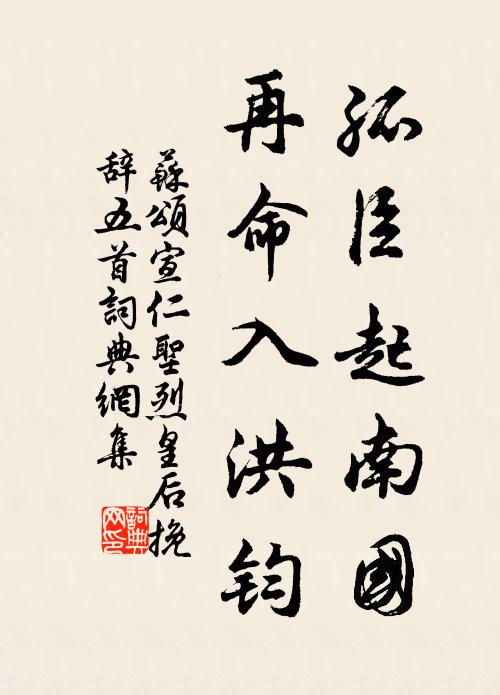 孤臣起南國
再命入洪鈞
蘇頌宣仁聖烈皇后挽
辭五首詞典網集
詞典
网印